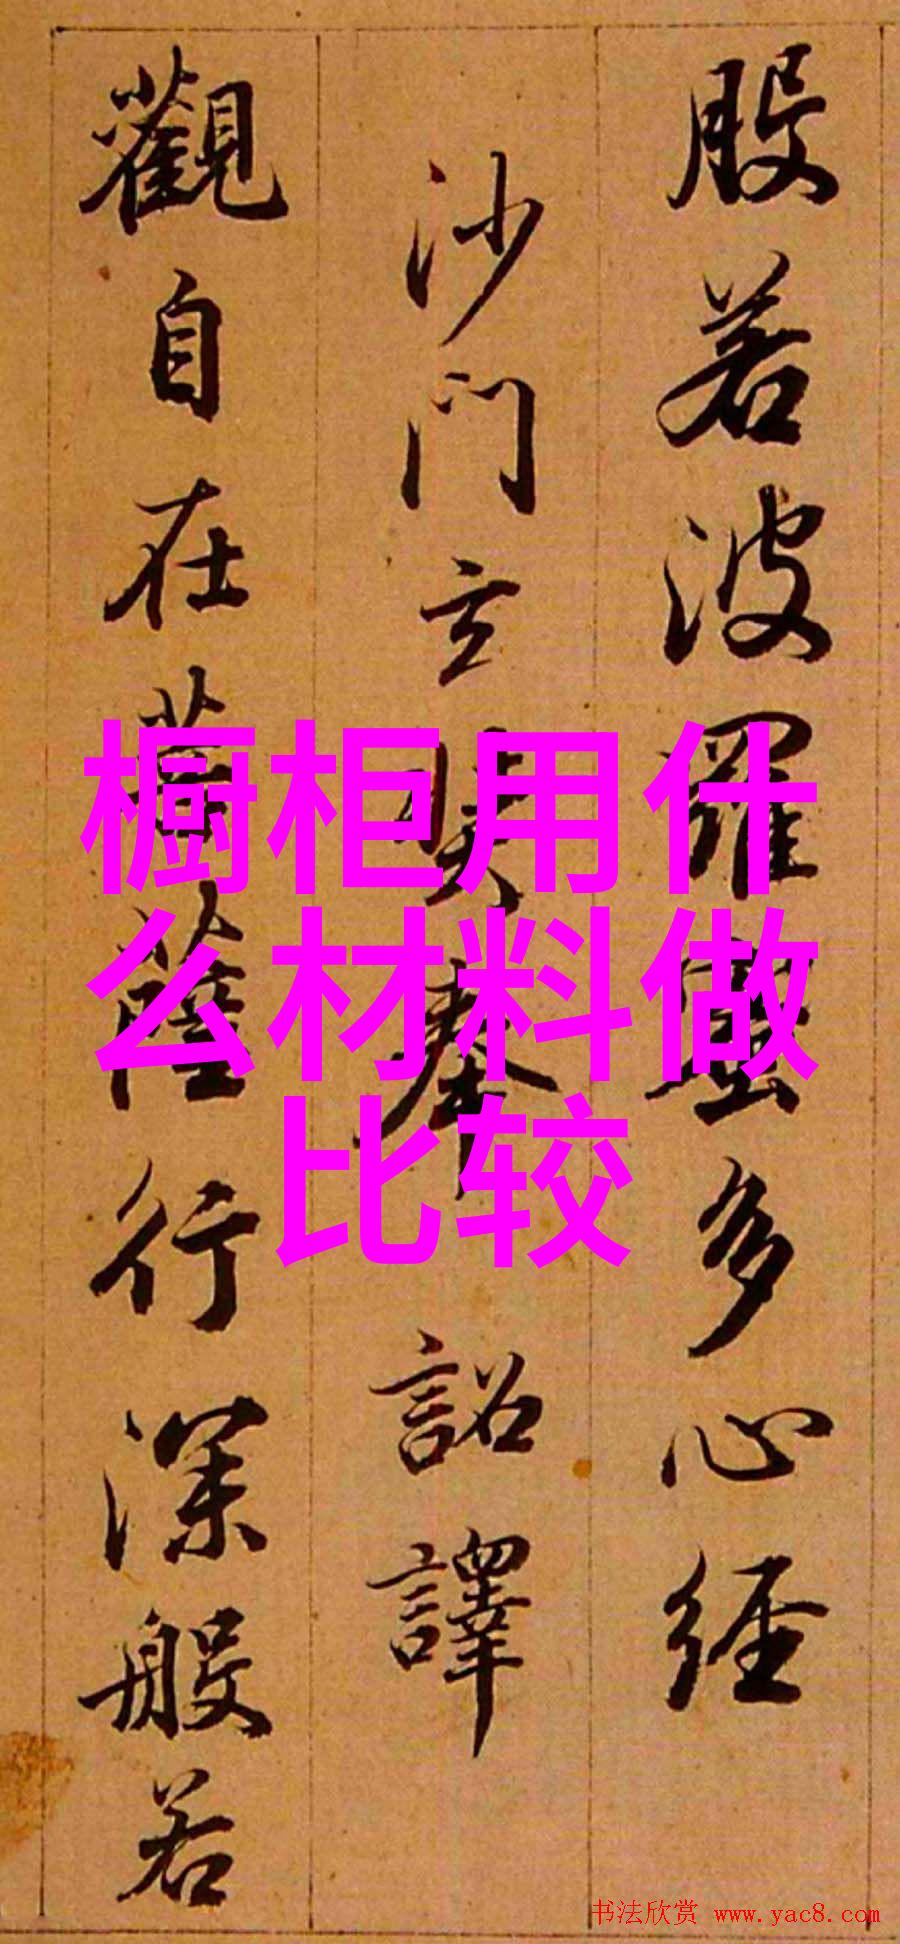 般若波羅蜜多心經
沙門玄奘奉 詔譯
觀自在菩薩行深般若
橱柜用什
么材料做
比较
书法欣赏 www.yac8.com